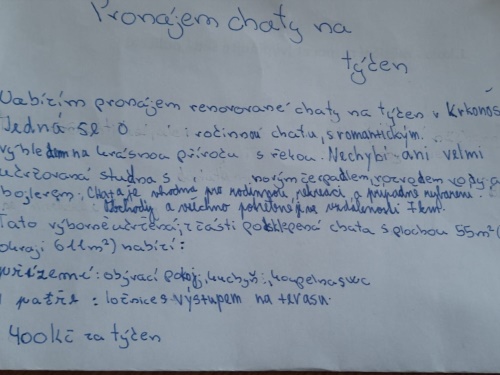 Pronájem chaty na
týčen
Uabízím pronájem renovované chaty na týčen v Krkonoš
Jedná se o ročinnou chatu, s romantickým
výhledem na krásnou přírodu s řekou. Nechybí ani velmi
udržovaná studna s novým čerpadlem, rozvodem vody, a
bojlerem. Chata je vhodná pro rodinnou rekreaci, a případné rybaření.
Obchody a všechno potřebné je na vzdálenosti 7km.
Tato výborně udržená, z části podsklepená chata s plochou 55m²(
okraji 611m²) nabízí:
přízemní: obývací pokoj, kuchyň, koupelna s wc
1 patře: ločnice s výstupem na terasu.
400kč za týčen